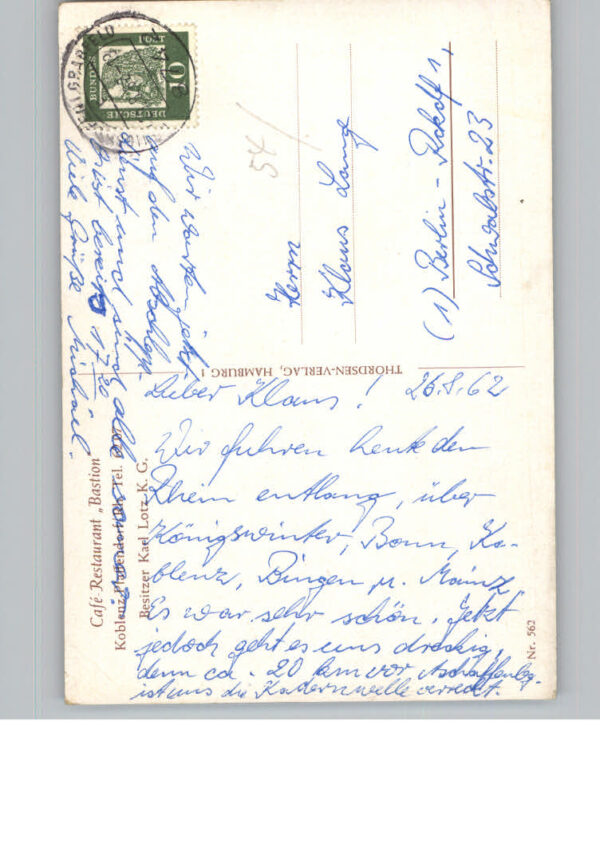 Lieber Klaus! 26.8.62
Wir fuhren heute den
Rhein entlang, über
Königswinter, Bonn, Ko-
blenz, Bingen u. Mainz.
Es war sehr schön. Jetzt
jedoch geht es uns dreckig,
denn ca. 20 km vor Aschaffenbg.
ist uns die Kadernwelle verreckt.
Wir warten jetzt
auf den
und sind alle
ist bereits 17 20
Viele Grüße Michael.
Herrn
Klaus Lang
(1) Berlin - Rckdf 1,
Schwalbstr. 23
54/
DEUTSCHE
BUNDESPOST
10
THORDSEN-VERLAG, HAMBURG 1
Café Restaurant „Bastion
Koblenz-Pfaffendorf Tel.
Besitzer Karl Lotz K. G.
Nr. 562